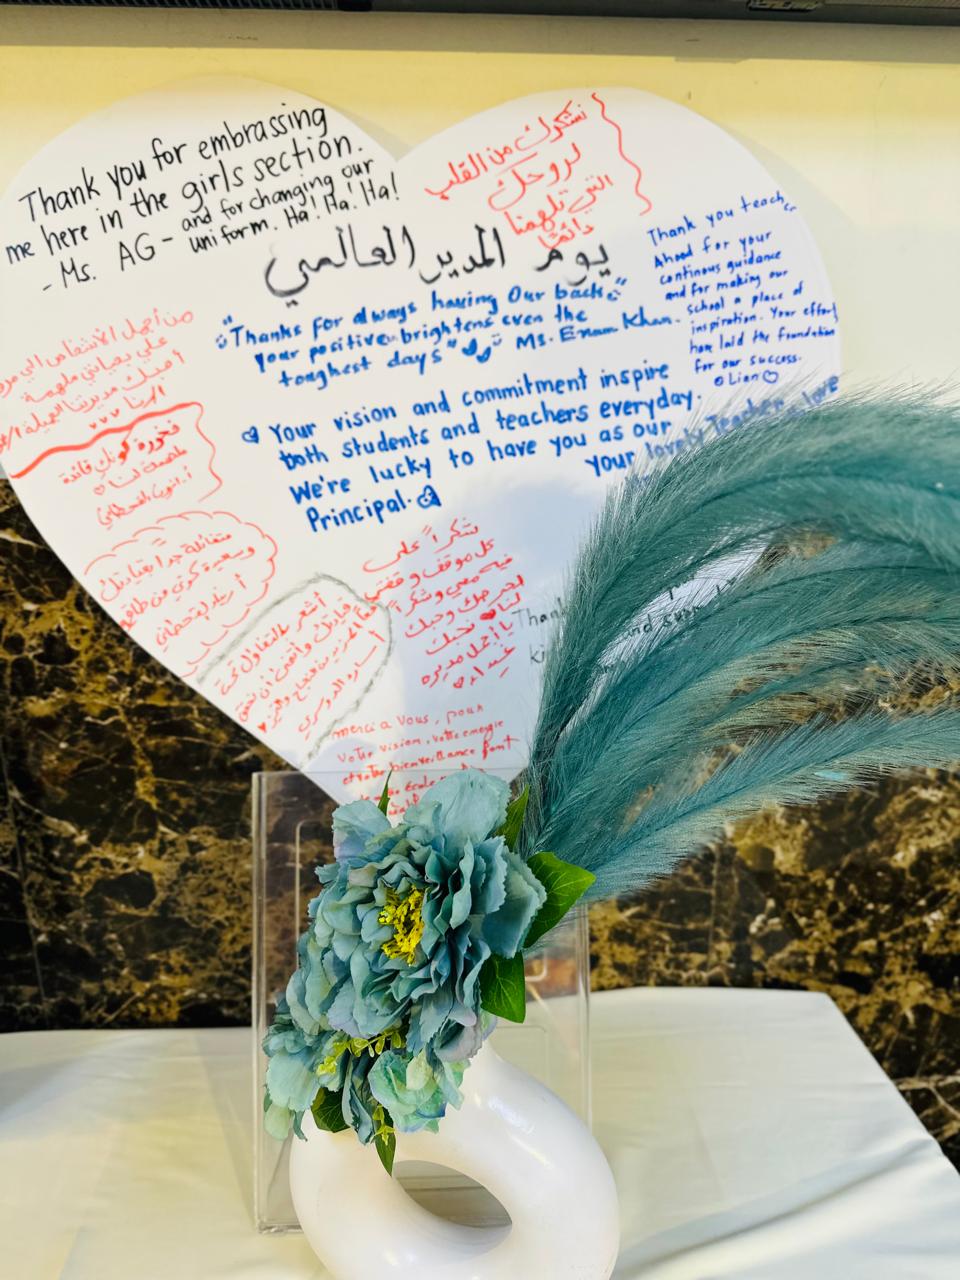 Thank you for embrassing
me here in the girls section.
- Ms. AG - and for changing our
uniform. Ha! Ha! Ha!
نشكرك من القلب
لروحك
التي تلهمنا
دائمًا
يوم المدير العالمي
Thank you teach
Ahood for your
continous guidance
and for making our
school a place of
inspiration. Your effort
have laid the foundation
for our success.
Lian
"Thanks for always having our back
your positive brightens even the
toughest days" Ms. Enam Khan.
Your vision and commitment inspire
both students and teachers everyday.
We're lucky to have you as our
Principal.
your lovely Teacher
love
من أجمل الأشخاص
علي بصماتي ملهمة
مديرتنا الجميلة
فخورة كونك قائدة
ملهمة لنا
متفائلة جدا بقيادتك
وسعيدة كوني من طاقم
أشعر بالتفاؤل تحت
قيادتك وأتمنى أن نحقق
المزيد من النجاح
أ. سارة الدوسري
شكراً على
كل موقف وقفتي
فيه معي وشكراً
لحرصك وحبك
لنا نحبك
يا أجمل مديره
Thank
and
ki
merci a Vous, pour
votre vision, votre energie
et votre bienveillance font
école